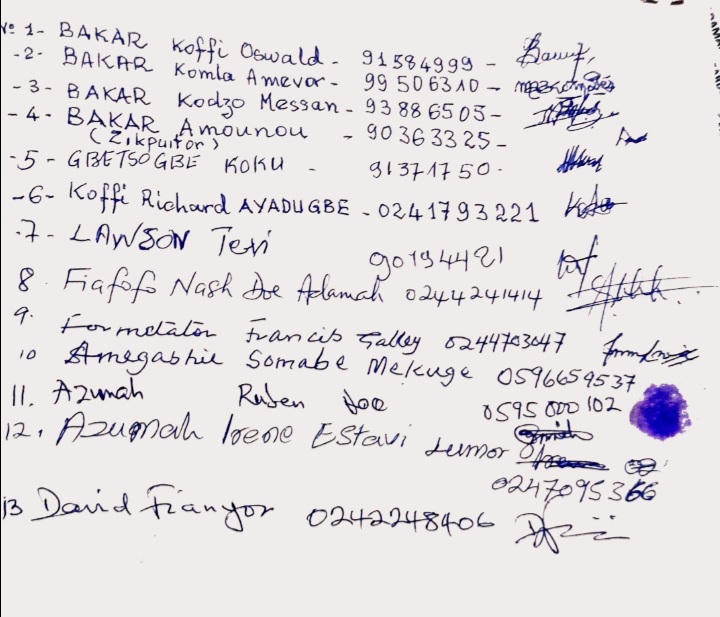 N° 1- BAKAR Koffi Oswald - 91584999 -
-2- BAKAR Komla Amevor - 99506310 -
-3- BAKAR Kodzo Messan - 93886505 -
-4- BAKAR Amounou - 90363325 -
(Zikpuitor)
-5- GBETSOGBE KOKU - 91371750.
-6- Koffi Richard AYADUGBE - 0241793221
-7- LAWSON Tevi 90194421
8. Fiafofo Nash Doe Adamah 0244241414
9. Formetator Francis Galley 0244703047
10 Amegashie Somabe Mekuge 0596659537
11. Azumah Ruben Doe 0595000102
12. Azumah Irene Estavi Lumor
0247095366
13 David Fianyor 0242248406